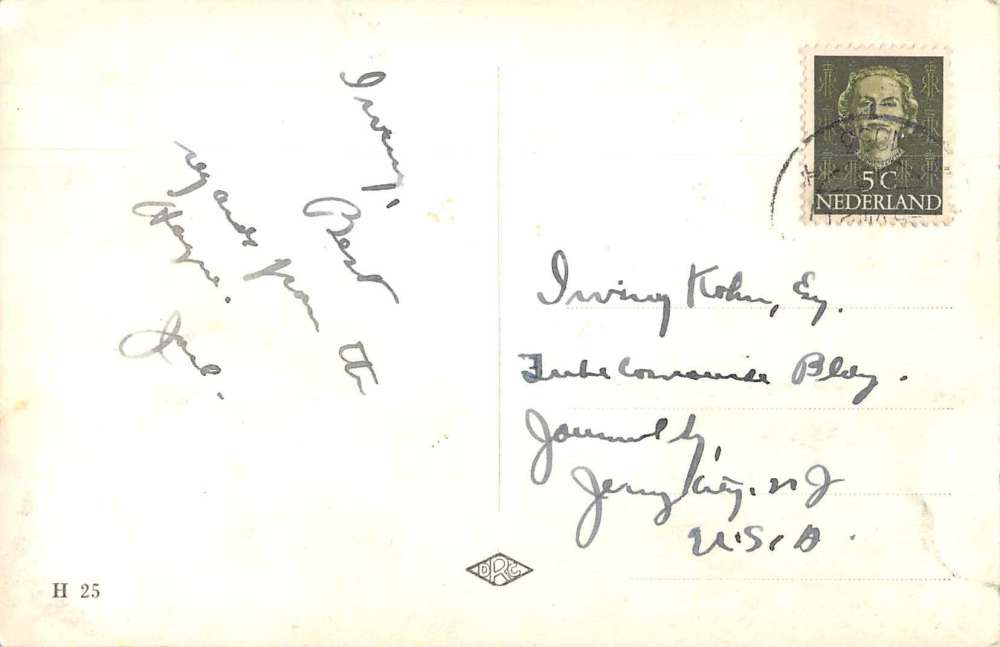 Irving,
Best
regards from the
Hague.
5 C
NEDERLAND
Irving Kohn, Esq.
Bldg.
Journal Sq,
Jersey City, N J
U.S.A.
DRC
H 25